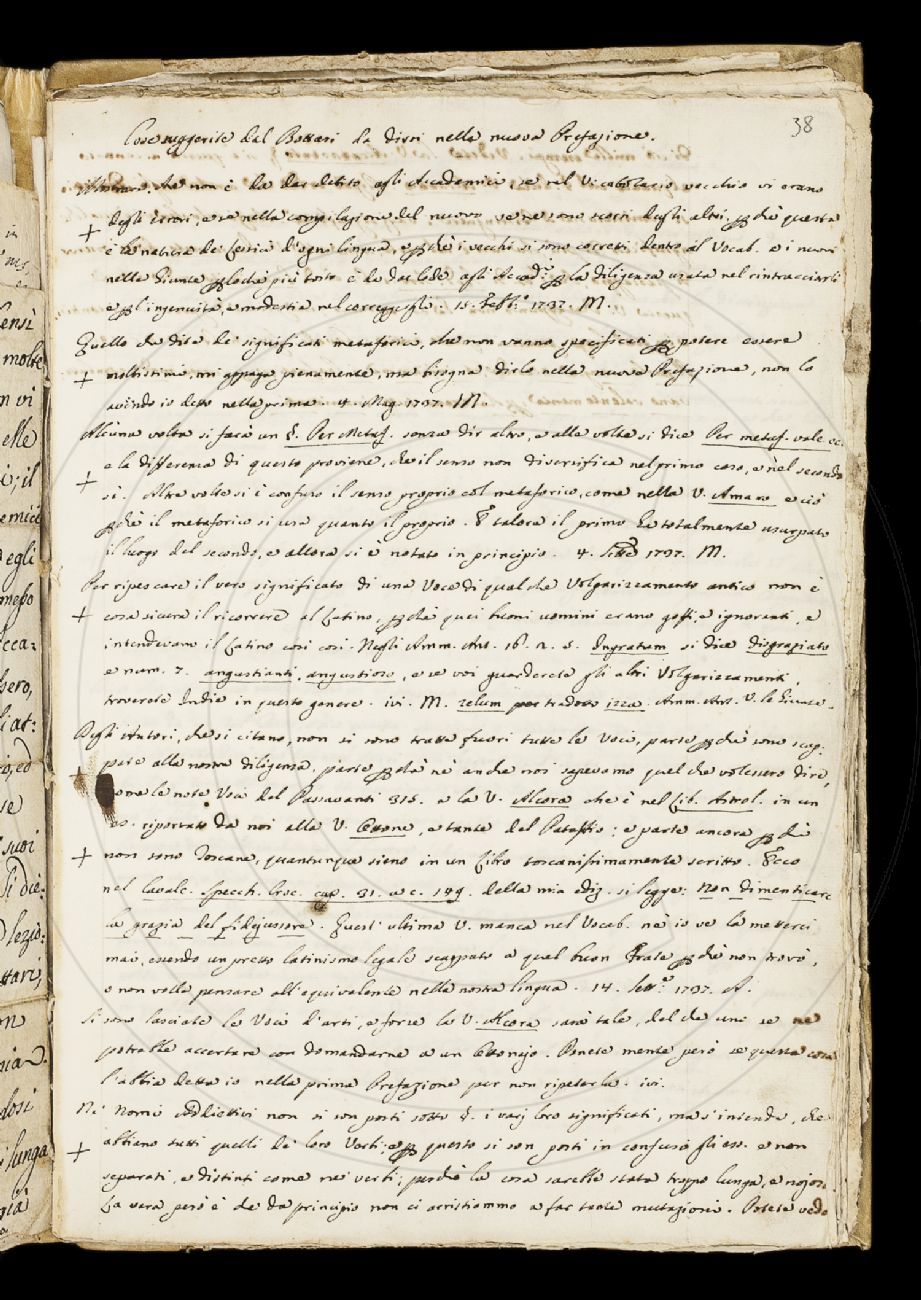 38
Cose suggerite dal Bottari da dirsi nella nuova Prefazione.
Che non è da dar debito agli Accademici, se nel Vocabolario vecchio vi erano
degli errori, e se nella compilazione del nuovo se ne sono scorsi degli altri, pchè questa
è la natura de' Lessici d'ogni lingua, e pchè i vecchi si sono corretti dentro al Vocab. e i nuovi
nelle Giunte, plochè più tosto è da dar lode agli Accad.ci p la diligenza usata nel rintracciarli
e p l'ingenuità, e modestia nel correggerli. 15. Febb.o 1737. M.
Quello che dite de' significati metaforici, che non vanno specificati p potere essere
moltissimi, mi appaga pienamente, ma bisogna dirlo nella nuova Prefazione, non lo
avendo io detto nella prima. 4. Mag. 1737. M.
Alcuna volta si farà un §. Per Metaf. senza dir altro, e alle volte si dice Per metaf. vale ec.
e la differenza di questo proviene, che il senso non diversifica nel primo caso, e nel secondo
sì. Altre volte si è confuso il senso proprio col metaforico, come nella V. Amaro e ciò
pchè il metaforico si usa quanto il proprio. E talora il primo ha totalmente usurpato
il luogo del secondo, e allora si è notato in principio. 4. 1737. M.
Per ripescare il vero significato di una Voce di qualche Volgarizzamento antico non è
cosa sicura il ricorrere al Latino, pchè quei buoni uomini erano goffi, e ignoranti, e
intendevano il Latino così così. Negli Amm. Ant. 16. 2. 5. Ingratum si dice disgraziato
e num. 7. angustianti, angustioso, e se voi guarderete gli altri Volgarizzamenti,
troverete Indie in questo genere. ivi. M. zelum tradotto izza. Amm. Ant. V. le Giunte.
Degli Autori, che si citano, non si sono tratte fuori tutte le Voci, parte pchè sono scap:
pate alla nostra diligenza, parte pchè nè anche noi sapevamo quel che volessero dire,
come le note Voci del Passavanti 315. e la V. Alcora che è nel Lib. Astrol. in un
es. riportato da noi alla V. Ottone, e tante del Pataffio; e parte ancora p chè
non sono Toscane, quantunque sieno in un Libro toscanissimamente scritto. Ecco
nel Cavalc. Specch. Croc. cap. 31. a c. 149. della mia ediz. si legge: Non dimenticare
la grazia del fidejussore. Quest'ultima V. manca nel Vocab. nè io ve la metterei
mai, essendo un pretto latinismo legale scappato a quel buon Frate pchè non trovò,
o non volle pensare all'equivalente nella nostra lingua. 14. Sett.e 1737. A.
Si sono lasciate le Voci d'arti, e forse la V. Alcora sarà tale, del che uno se ne
potrebbe accertare con domandarne a un Ottonajo. Ponete mente però se questa cosa
l'abbia detta io nella prima Prefazione per non ripeterla. ivi.
Ne' Nomi Addiettivi non si son posti sotto §. i varj loro significati, ma s'intende, che
abbiano tutti quelli de' loro Verbi; e p questo si son posti in confuso gli es. e non
separati, e distinti come ne' verbi; perchè la cosa sarebbe stata troppo lunga, e nojosa.
La vera però è che da principio non ci arristiammo a far tante mutazioni. Potete vede